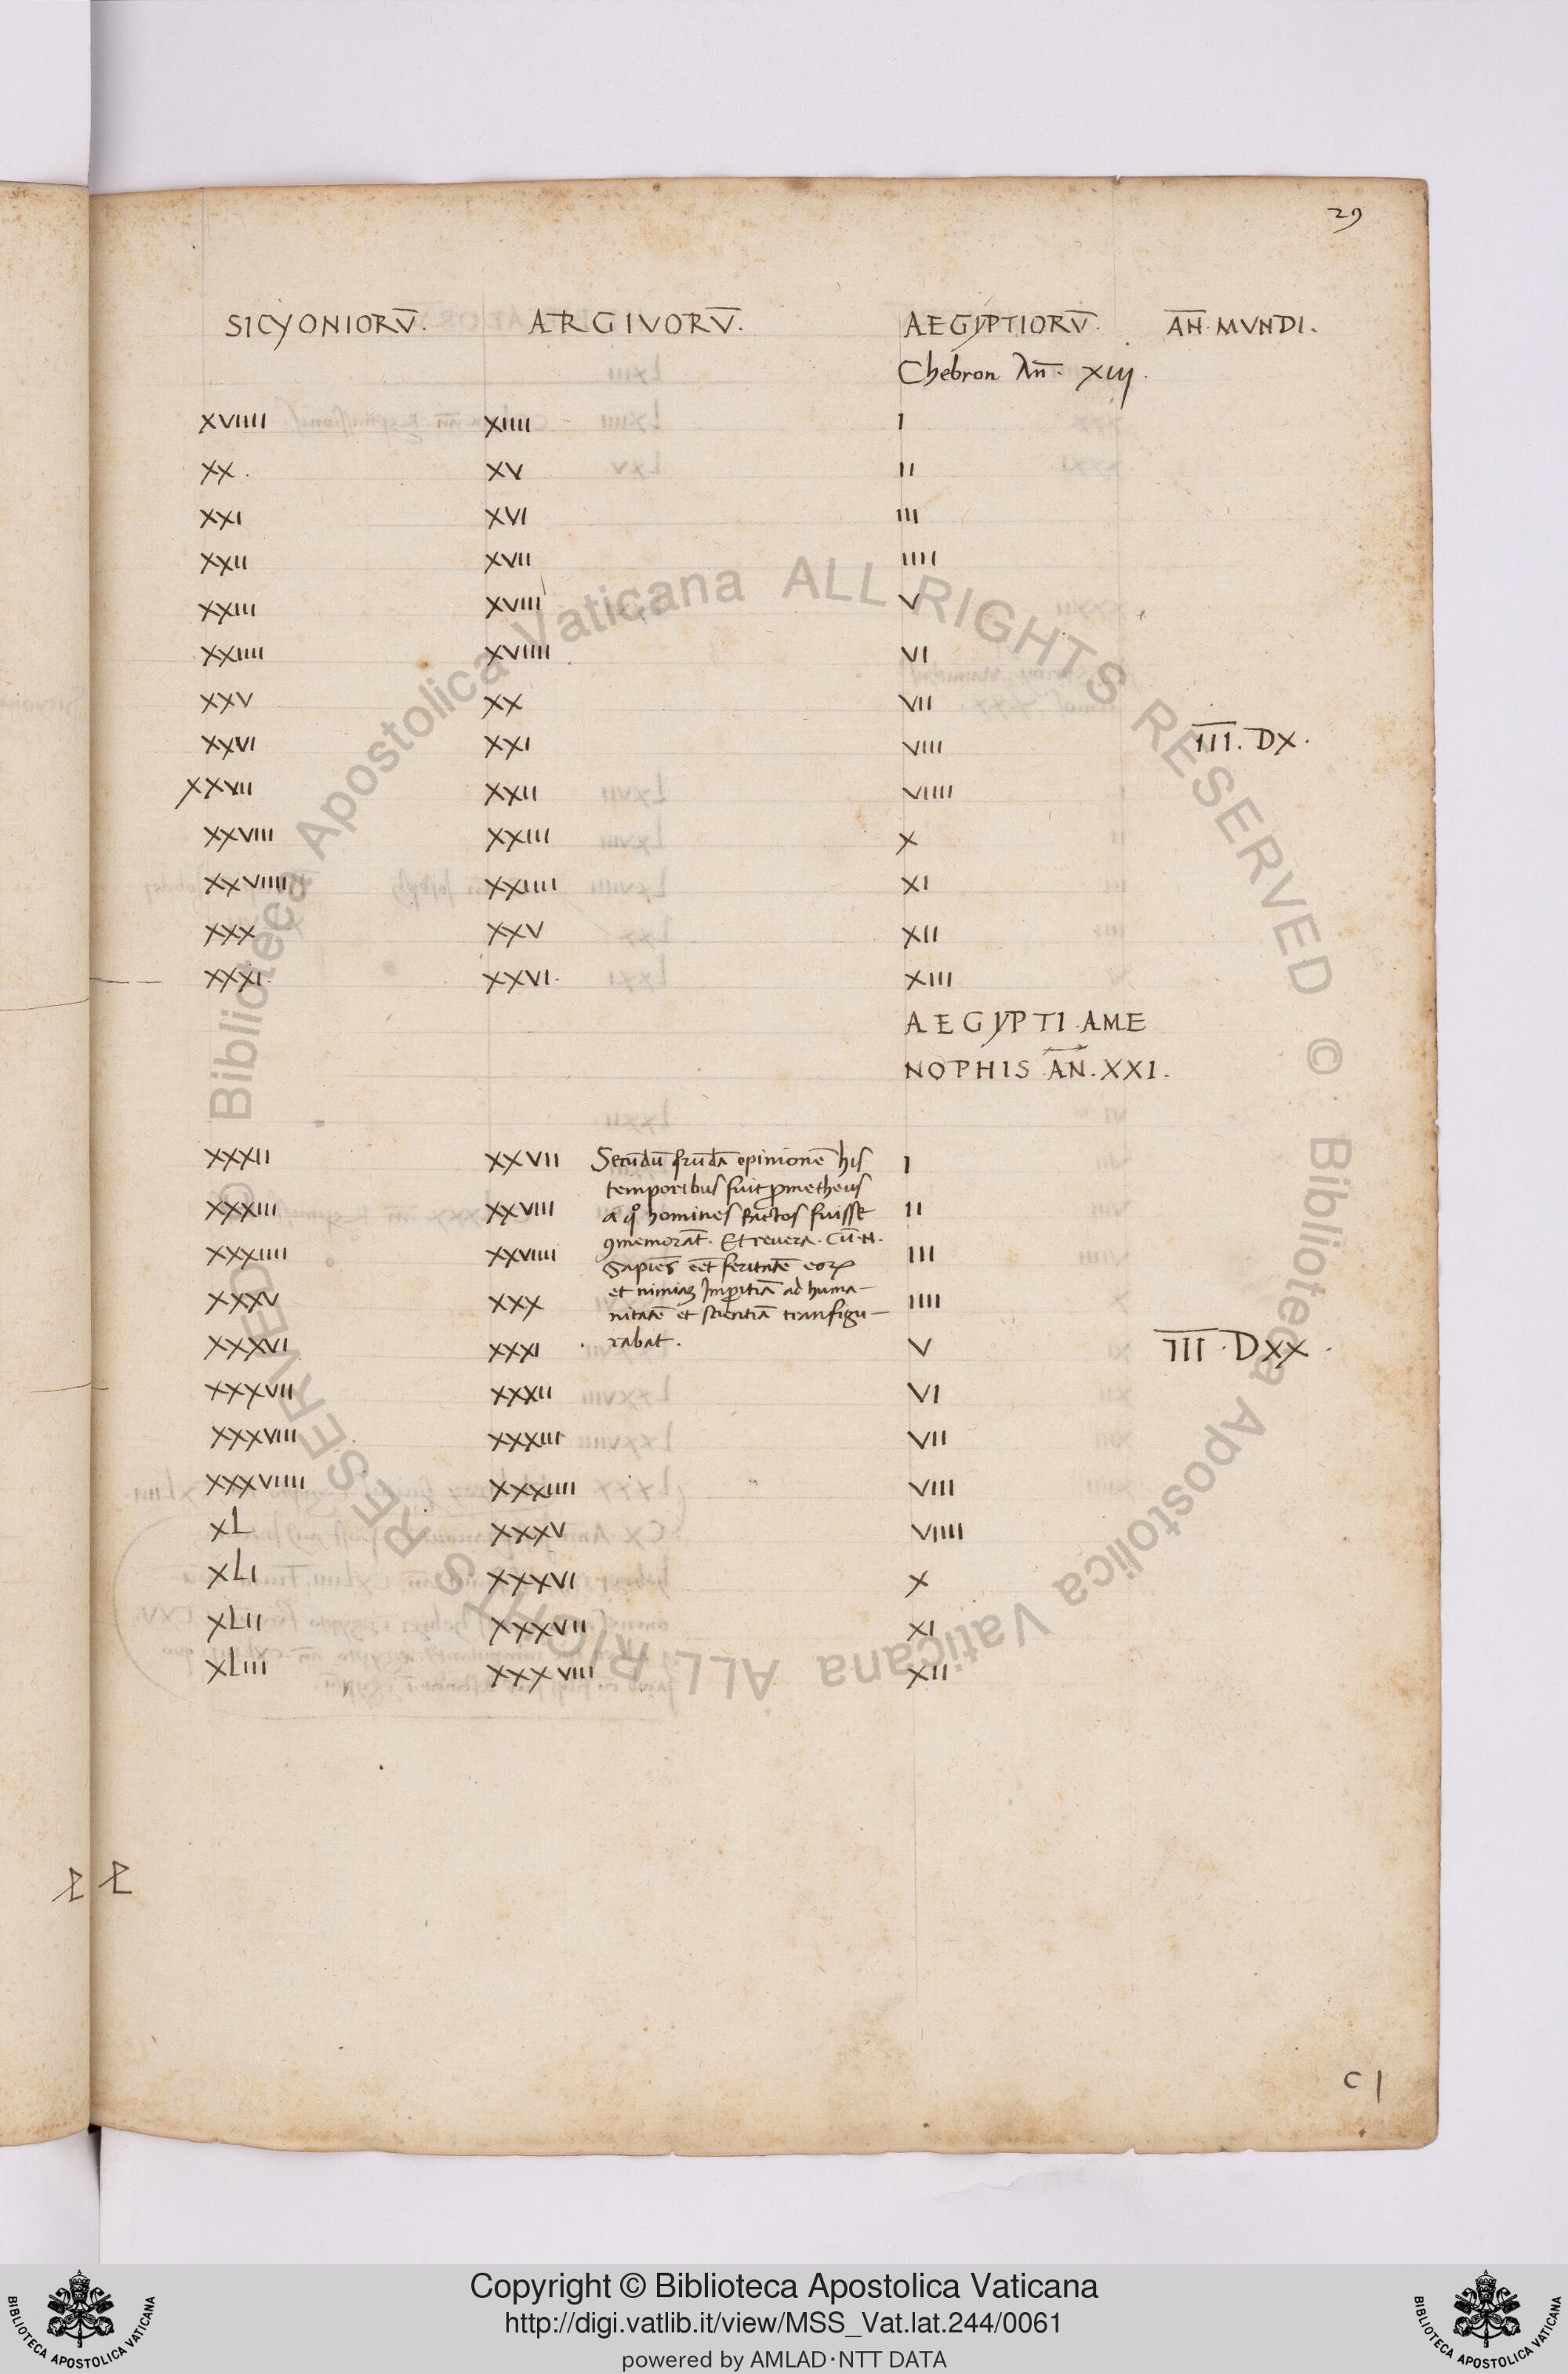 29
SICYONIORV̄. ARGIVORV̄. AEGYPTIORV̄. AN̄. MVNDI.
Chebron An̄. XIIJ.
XVIIII XIIII I
XX. XV II
XXI XVI III
XXII XVII IIII
XXIII XVIII V
XXIIII XVIIII VI
XXV XX VII
XXVI XXI VIII I̅I̅I̅. DX.
XXVII XXII VIIII
XXVIII XXIII X
XXVIIII XXIIII XI
XXX XXV XII
XXXI. XXVI. XIII
AEGYPTI AME
NOPHIS AN̄. XXI.
XXXII XXVII Secūdū qrūdā opinionē his I
temporibus fuit ꝓmetheus
XXXIII XXVIII a qͦ homines factos fuisse II
ꝯmemorāt. Et revera. Cū. N.
XXXIIII XXVIIII Sapiēs eēt feritatē eoꝝ III
et nimiaꝫ Imꝑitiā ad huma-
XXXV XXX nitatē et scientiā transfigu- IIII
XXXVI XXXI rabat. V I̅I̅I̅. DXX.
XXXVII XXXII VI
XXXVIII XXXIII VII
XXXVIIII XXXIIII VIII
XL XXXV VIIII
XLI XXXVI X
XLII XXXVII XI
XLIII XXXVIII XII
C I
© Biblioteca Apostolica Vaticana ALL RIGHTS RESERVED
© Biblioteca Apostolica Vaticana ALL RIGHTS RESERVED
Copyright © Biblioteca Apostolica Vaticana
http://digi.vatlib.it/view/MSS_Vat.lat.244/0061
powered by AMLAD·NTT DATA
BIBLIOTECA APOSTOLICA VATICANA
BIBLIOTECA APOSTOLICA VATICANA